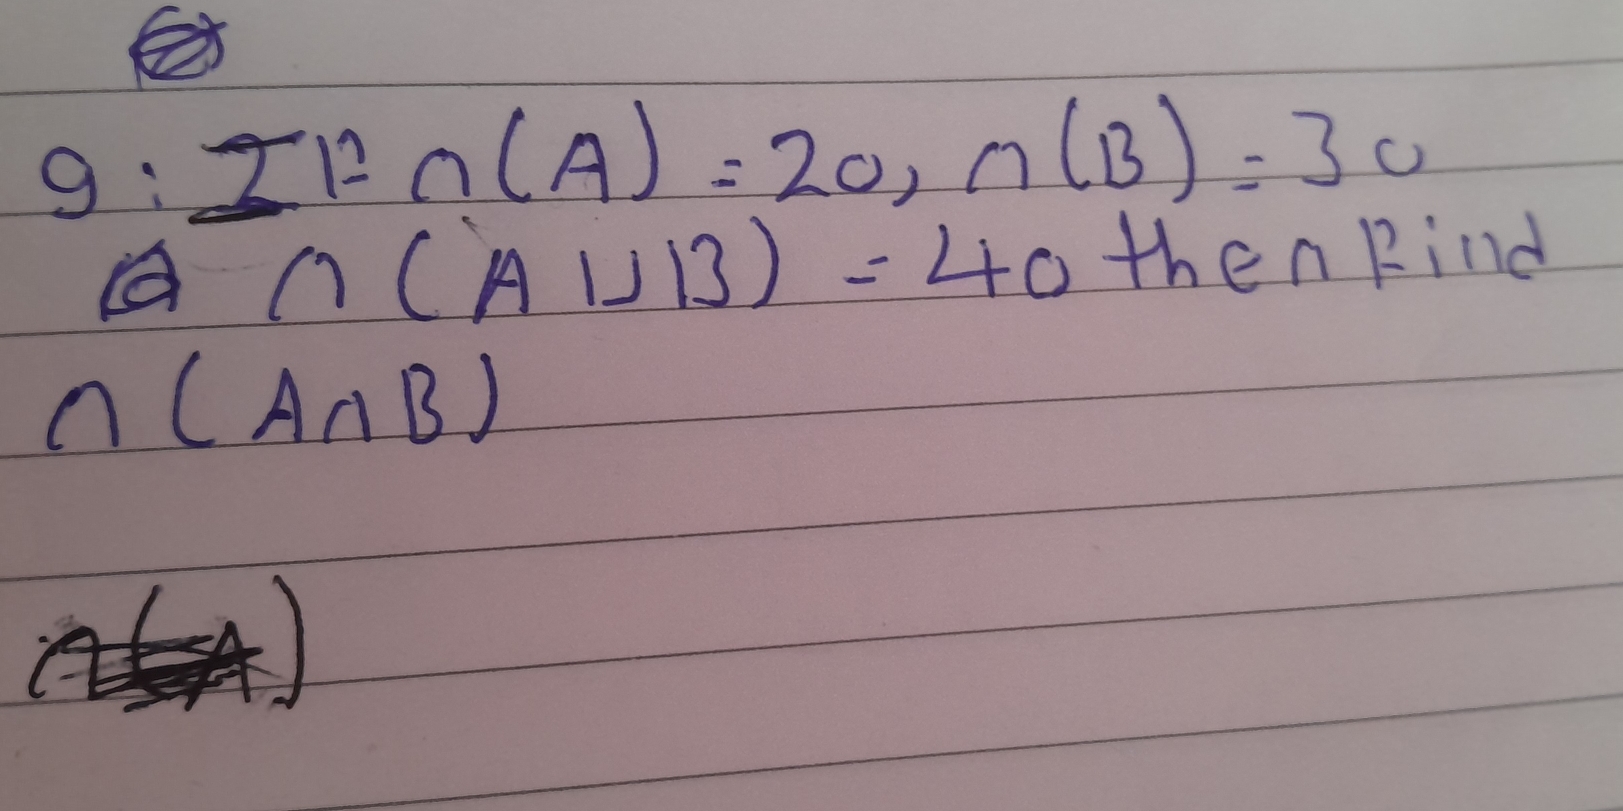 9: IF n(A) = 20, n(B) = 30
n(A∪B) = 40 then Find
n(A∩B)